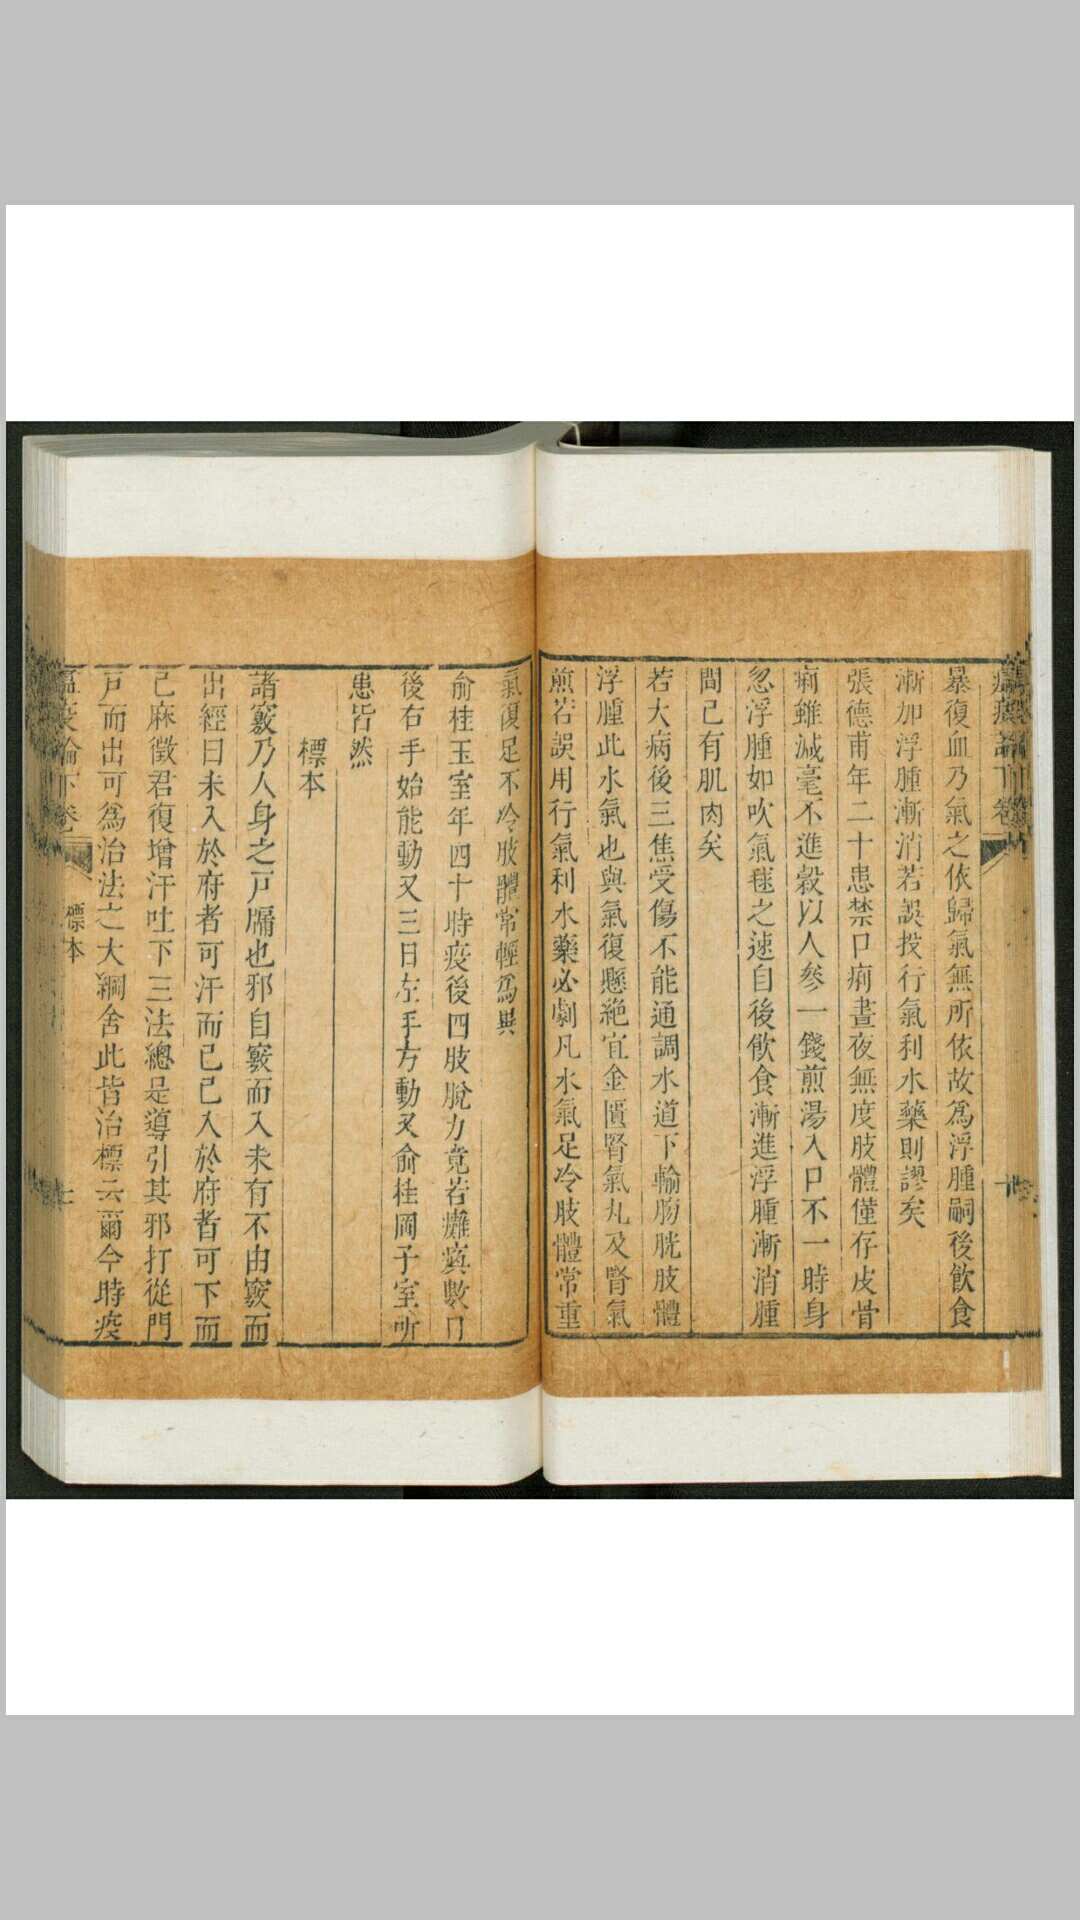 暴復血乃氣之依歸氣無所依故為浮腫嗣後飲食
漸加浮腫漸消若誤投行氣利水藥則謬矣
張德甫年二十患禁口痢晝夜無度肢體僅存皮骨
痢雖減毫不進穀以人參一錢煎湯入口不一時身
忽浮腫如吹氣毬之速自後飲食漸進浮腫漸消腫
間已有肌肉矣
若大病後三焦受傷不能通調水道下輸膀胱肢體
浮腫此水氣也與氣復懸絕宜金匱腎氣丸及腎氣
煎若誤用行氣利水藥必劇凡水氣足冷肢體常重
氣復足不冷肢體常輕為異
俞桂玉室年四十時疫後四肢脫力竟若癱瘓數日
後右手始能動又三日左手方動又俞桂岡子室所
患皆然
標本
諸竅乃人身之戶牖也邪自竅而入未有不由竅而
出經曰未入於府者可汗而已已入於府者可下而
已麻徵君復增汗吐下三法總是導引其邪打從門
戶而出可為治法之大綱舍此皆治標云爾今時疫
瘟疫論下卷 標本